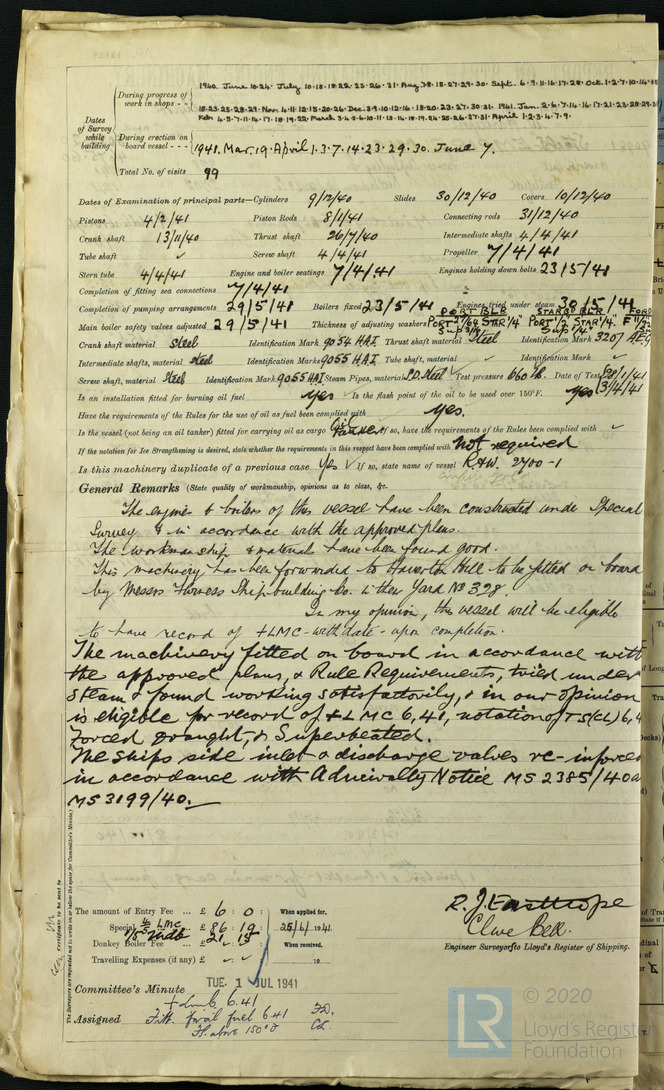 1940. June 10.26. July 10.15.18.22.23.26.31. Aug 7.8.15.27.29.30. Sept. 6.9.11.16.17.28. Oct. 1.2.7.10.14.15
During progress of work in shops - -
18.23.25.28.29. Nov. 4.11.12.15.20.26. Dec. 3.9.10.12.16.18.20.23.27.30.31. 1941. Jan. 2.6.7.14.16.17.21.23.28.29.31
Feb. 4.5.7.11.14.17.18.19.22. March 3.4.5.6.10.11.13.14.18.19.24.25.26.27.31. April 1.2.3.4.7.9.
Dates of Survey while building
During erection on board vessel - - -
1941. Mar. 19. April 1.3.7.14.23.29.30. June 7.
Total No. of visits 99
Dates of Examination of principal parts—Cylinders 9/12/40 Slides 30/12/40 Covers 10/12/40
Pistons 4/2/41 Piston Rods 8/1/41 Connecting rods 31/12/40
Crank shaft 13/11/40 Thrust shaft 26/7/40 Intermediate shafts 4/4/41
Tube shaft ✓ Screw shaft 4/4/41 Propeller 7/4/41
Stern tube 4/4/41 Engine and boiler seatings 7/4/41 Engines holding down bolts 23/5/41
Completion of fitting sea connections 7/4/41
Completion of pumping arrangements 29/5/41 Boilers fixed 23/5/41 Engines tried under steam 30/5/41
PORT BLR STARBD BLR FORD
Main boiler safety valves adjusted 29/5/41 Thickness of adjusting washers PORT 27/64 STAR 1/4" PORT 1/2" STAR 1/4"
Crank shaft material Steel Identification Mark 9054 HAI Thrust shaft material Steel Identification Mark 3207
Intermediate shafts, material Steel Identification Marks 9055 HAI Tube shaft, material ✓ Identification Mark ✓
Screw shaft, material Steel Identification Mark 9055 HAI Steam Pipes, material S.D. Steel Test pressure 660 lb. Date of Test 20/1/41
3/4/41
Is an installation fitted for burning oil fuel yes Is the flash point of the oil to be used over 150°F. yes
Have the requirements of the Rules for the use of oil as fuel been complied with yes.
Is the vessel (not being an oil tanker) fitted for carrying oil as cargo Tanker If so, have the requirements of the Rules been complied with ✓
If the notation for Ice Strengthening is desired, state whether the requirements in this respect have been complied with Not required
Is this machinery duplicate of a previous case Yes ✓ If so, state name of vessel R&W. 2700-1
General Remarks (State quality of workmanship, opinions as to class, &c.
The engines & boilers of this vessel have been constructed under Special
Survey & in accordance with the approved plans.
The workmanship & material have been found good.
This machinery has been forwarded to Haverton Hill to be fitted on board
by Messrs Furness Shipbuilding Co. in their Yard No 328.
In my opinion, the vessel will be eligible
to have record of +LMC - with date - upon completion.
The machinery fitted on board in accordance with
the approved plans, & Rule Requirements, tried under
steam & found working satisfactorily, & in our opinion
is eligible for record of +LMC 6,41, notation of TS(CL) 6,4
Forced draught, & Superheated.
The ships side inlet & discharge valves re-inforced
in accordance with Admiralty Notice MS 2385/40 a
MS 3199/40.
The Surveyors are requested not to write on or below the space for Committee's Minute.
Certificate to be sent to
The amount of Entry Fee ... £ 6 : 0 : When applied for,
Special 4/5 LMC £ 86 : 19 : 25/6/1941
1/5 £ 21 : 15
Donkey Boiler Fee ... When received,
Travelling Expenses (if any) £ ✓ : ✓ : 19
R. J. Easthope
Clive Bell.
Engineer Surveyors to Lloyd's Register of Shipping.
TUE. 1 JUL 1941
Committee's Minute
Assigned
+ Lmb 6.41
Fitt. for oil fuel 6.41
F.P. above 150°F
F.D.
CL.
LR
© 2020
Lloyd's Register
Foundation